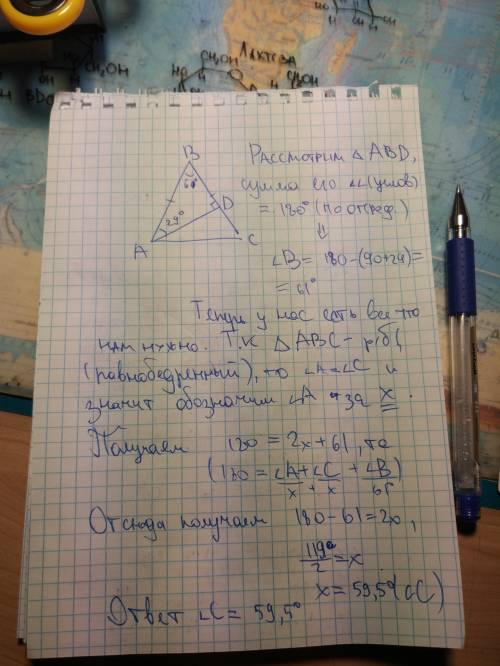 Лактоза
CH₂OH
HO
H
OH
H
CH₂OH
B
61°
D
29°
A
C
Рассмотрим △ ABD,
сумма его ∠∠(углов)
= 180° (по опред.)
⇓
∠B = 180-(90+29)=
= 61°
Теперь у нас есть все что
нам нужно. Т.к △ ABC - р/б(
(равнобедренный), то ∠A=∠C и
значит обозначим ∠A за x.
Получаем 180 = 2x+61, то
(180 = ∠A+∠C + ∠B)
x + x 61
Отсюда получаем 180-61=2x,
119°/2=x
x = 59,5°(∠C)
Ответ ∠C = 59,5°